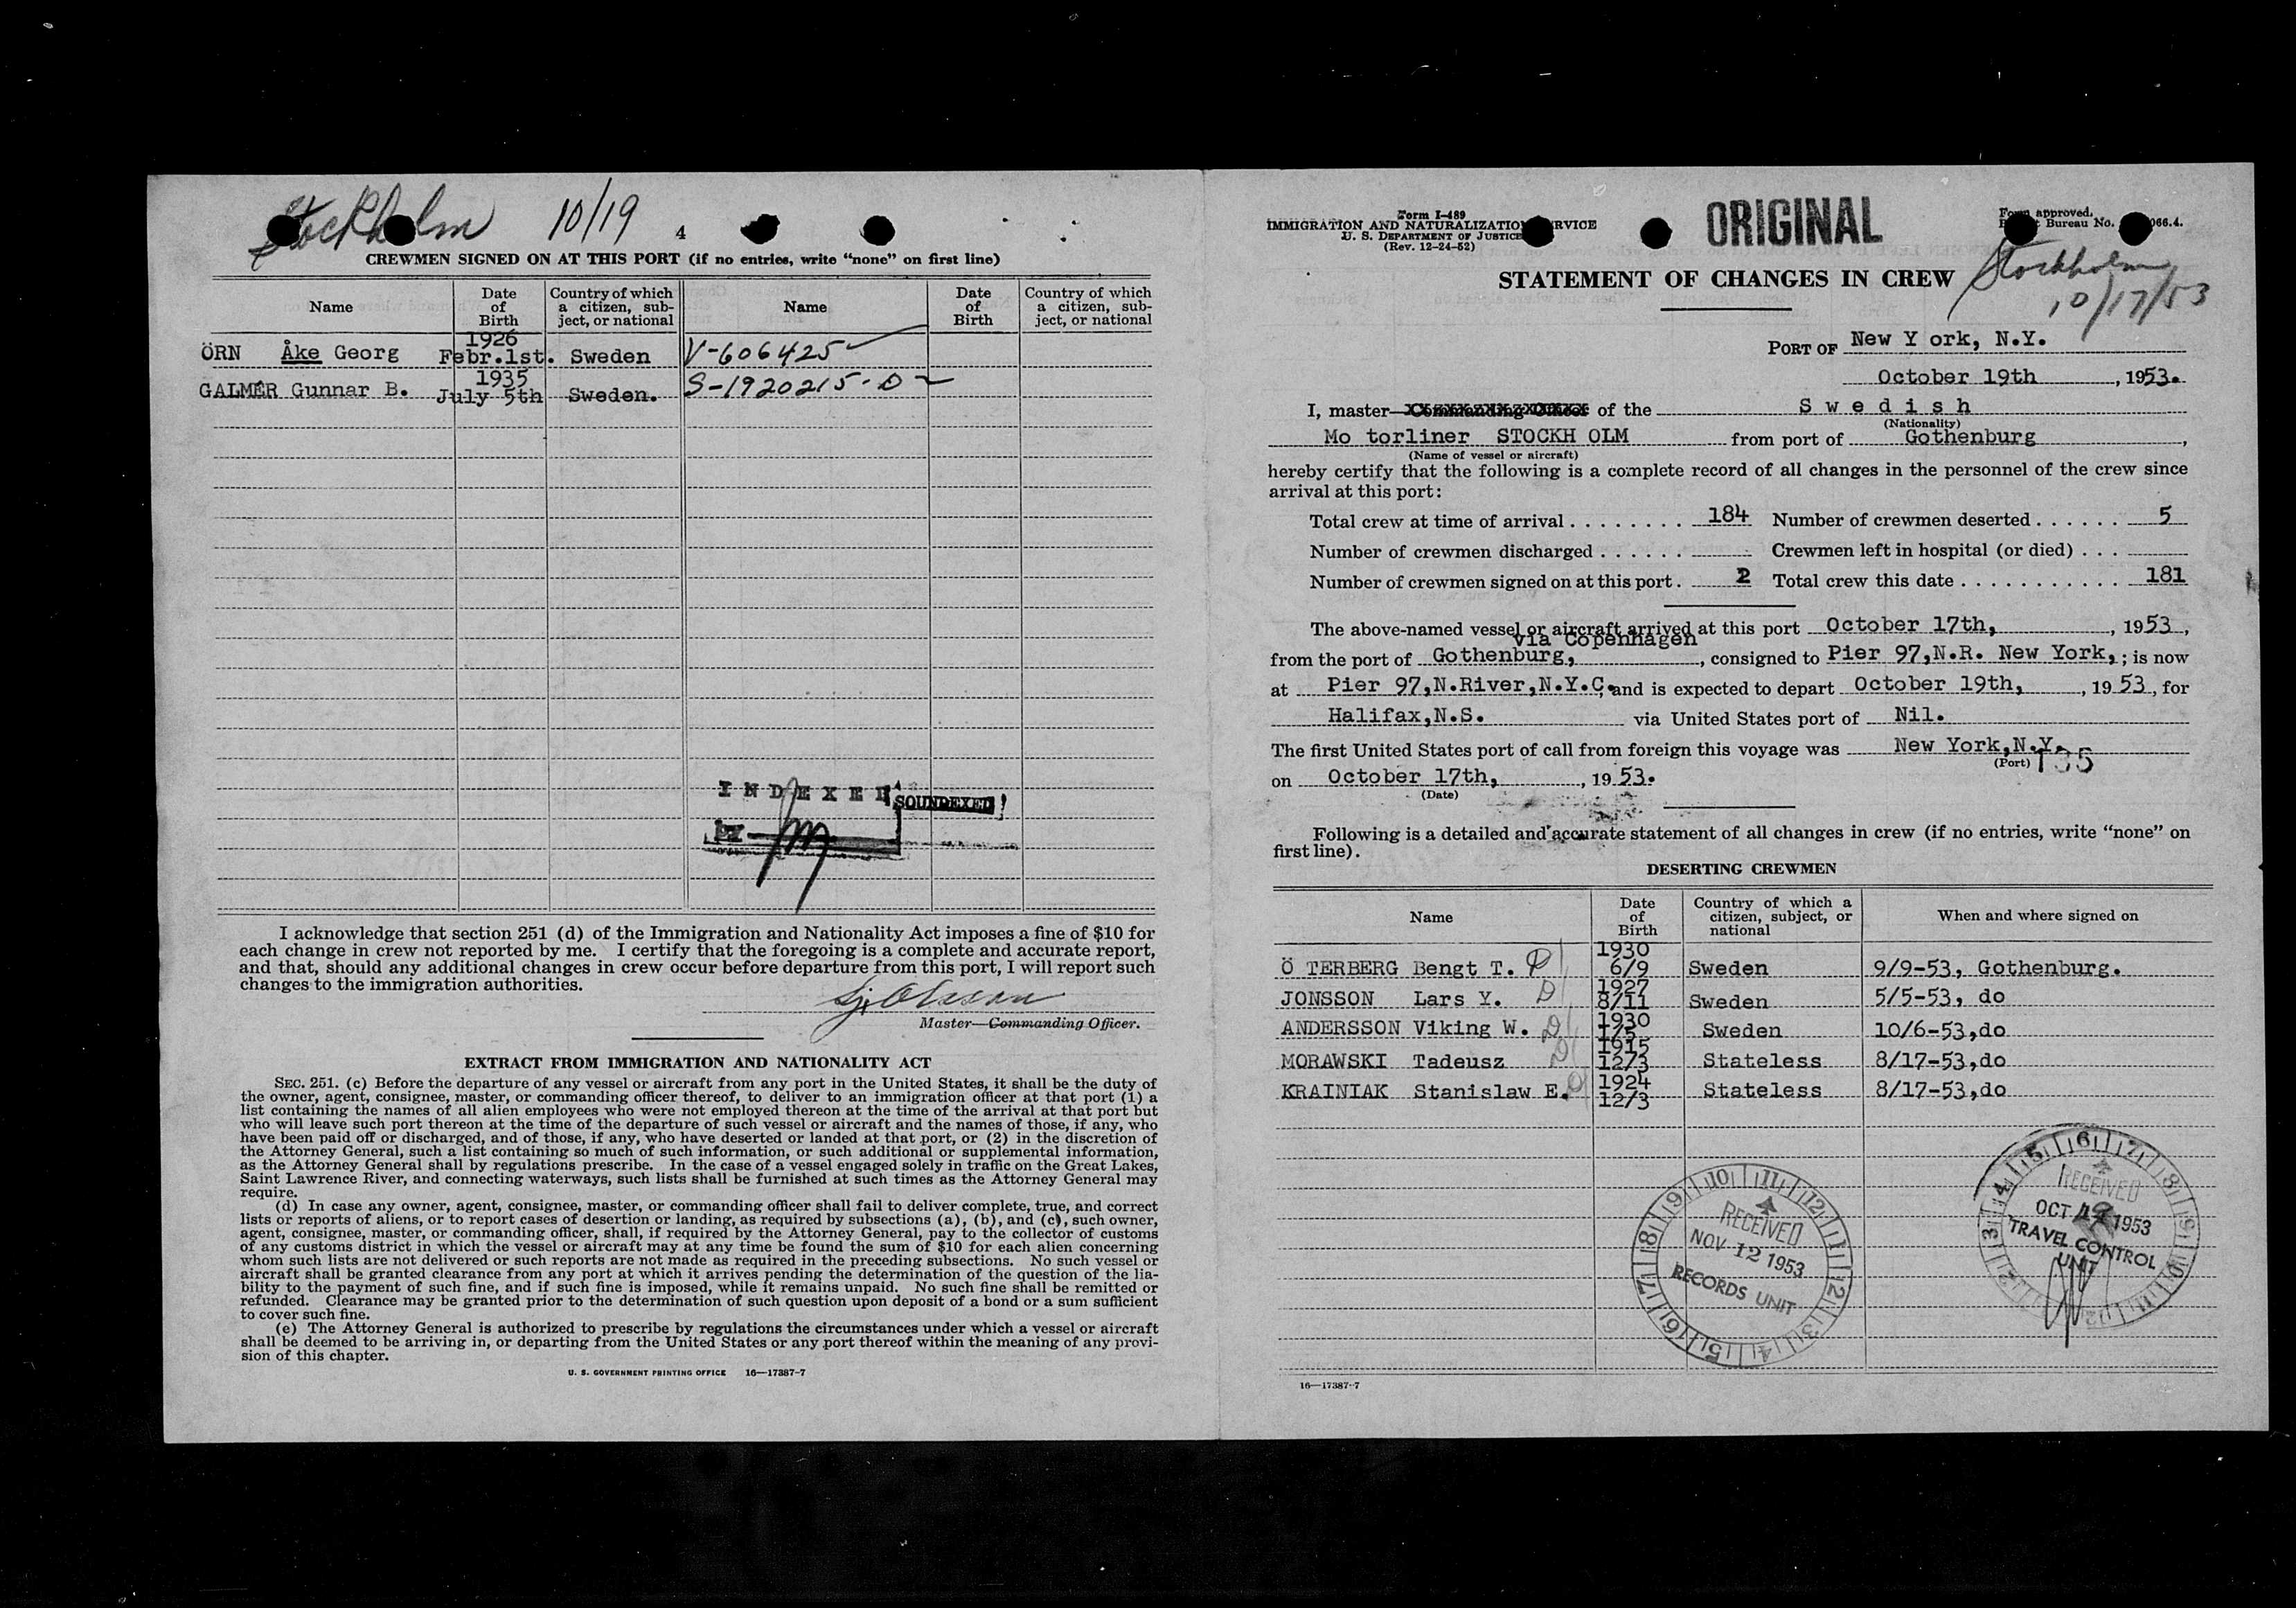 Stockholm 10/19 4
CREWMEN SIGNED ON AT THIS PORT (if no entries, write “none” on first line)
Name Date of Birth Country of which a citizen, sub- ject, or national Name Date of Birth Country of which a citizen, sub- ject, or national
ÖRN Åke Georg 1926 Febr.1st. Sweden V-606425
GALMÉR Gunnar B. 1935 July 5th Sweden. S-1920215-D
INDEXED
SOUNDEXED
BY
I acknowledge that section 251 (d) of the Immigration and Nationality Act imposes a fine of $10 for
each change in crew not reported by me. I certify that the foregoing is a complete and accurate report,
and that, should any additional changes in crew occur before departure from this port, I will report such
changes to the immigration authorities.
Master—Commanding Officer.
EXTRACT FROM IMMIGRATION AND NATIONALITY ACT
SEC. 251. (c) Before the departure of any vessel or aircraft from any port in the United States, it shall be the duty of
the owner, agent, consignee, master, or commanding officer thereof, to deliver to an immigration officer at that port (1) a
list containing the names of all alien employees who were not employed thereon at the time of the arrival at that port but
who will leave such port thereon at the time of the departure of such vessel or aircraft and the names of those, if any, who
have been paid off or discharged, and of those, if any, who have deserted or landed at that port, or (2) in the discretion of
the Attorney General, such a list containing so much of such information, or such additional or supplemental information,
as the Attorney General shall by regulations prescribe. In the case of a vessel engaged solely in traffic on the Great Lakes,
Saint Lawrence River, and connecting waterways, such lists shall be furnished at such times as the Attorney General may
require.
(d) In case any owner, agent, consignee, master, or commanding officer shall fail to deliver complete, true, and correct
lists or reports of aliens, or to report cases of desertion or landing, as required by subsections (a), (b), and (c), such owner,
agent, consignee, master, or commanding officer, shall, if required by the Attorney General, pay to the collector of customs
of any customs district in which the vessel or aircraft may at any time be found the sum of $10 for each alien concerning
whom such lists are not delivered or such reports are not made as required in the preceding subsections. No such vessel or
aircraft shall be granted clearance from any port at which it arrives pending the determination of the question of the lia-
bility to the payment of such fine, and if such fine is imposed, while it remains unpaid. No such fine shall be remitted or
refunded. Clearance may be granted prior to the determination of such question upon deposit of a bond or a sum sufficient
to cover such fine.
(e) The Attorney General is authorized to prescribe by regulations the circumstances under which a vessel or aircraft
shall be deemed to be arriving in, or departing from the United States or any port thereof within the meaning of any provi-
sion of this chapter.
U. S. GOVERNMENT PRINTING OFFICE 16—17387-7
Form I-489
IMMIGRATION AND NATURALIZATION SERVICE
U. S. DEPARTMENT OF JUSTICE
(Rev. 12-24-52)
ORIGINAL
Form approved.
Bureau No. 066.4.
STATEMENT OF CHANGES IN CREW
Stockholm
10/17/53
PORT OF New Y ork, N.Y.
October 19th, 1953.
I, master—Commanding Officer of the S w e d i s h
(Nationality)
Mo torliner STOCKH OLM from port of Gothenburg,
(Name of vessel or aircraft)
hereby certify that the following is a complete record of all changes in the personnel of the crew since
arrival at this port:
Total crew at time of arrival 184 Number of crewmen deserted 5
Number of crewmen discharged Crewmen left in hospital (or died)
Number of crewmen signed on at this port 2 Total crew this date 181
The above-named vessel or aircraft arrived at this port October 17th, , 1953,
via Copenhagen
from the port of Gothenburg, , consigned to Pier 97,N.R. New York, ; is now
at Pier 97,N.River,N.Y.C. , and is expected to depart October 19th, , 1953, for
Halifax,N.S. via United States port of Nil.
The first United States port of call from foreign this voyage was New York,N.Y.
(Port)
on October 17th, , 1953.
(Date)
Following is a detailed and accurate statement of all changes in crew (if no entries, write “none” on
first line).
DESERTING CREWMEN
Name Date of Birth Country of which a citizen, subject, or national When and where signed on
Ö TERBERG Bengt T. D 1930 6/9 Sweden 9/9-53, Gothenburg.
JONSSON Lars Y. D 1927 8/11 Sweden 5/5-53, do
ANDERSSON Viking W. D 1930 1/5 Sweden 10/6-53,do
MORAWSKI Tadeusz D 1915 12/3 Stateless 8/17-53,do
KRAINIAK Stanislaw E. D 1924 12/3 Stateless 8/17-53,do
RECEIVED
NOV 12 1953
RECORDS UNIT
RECEIVED
OCT 1953
TRAVEL CONTROL
UNIT
16—17387-7